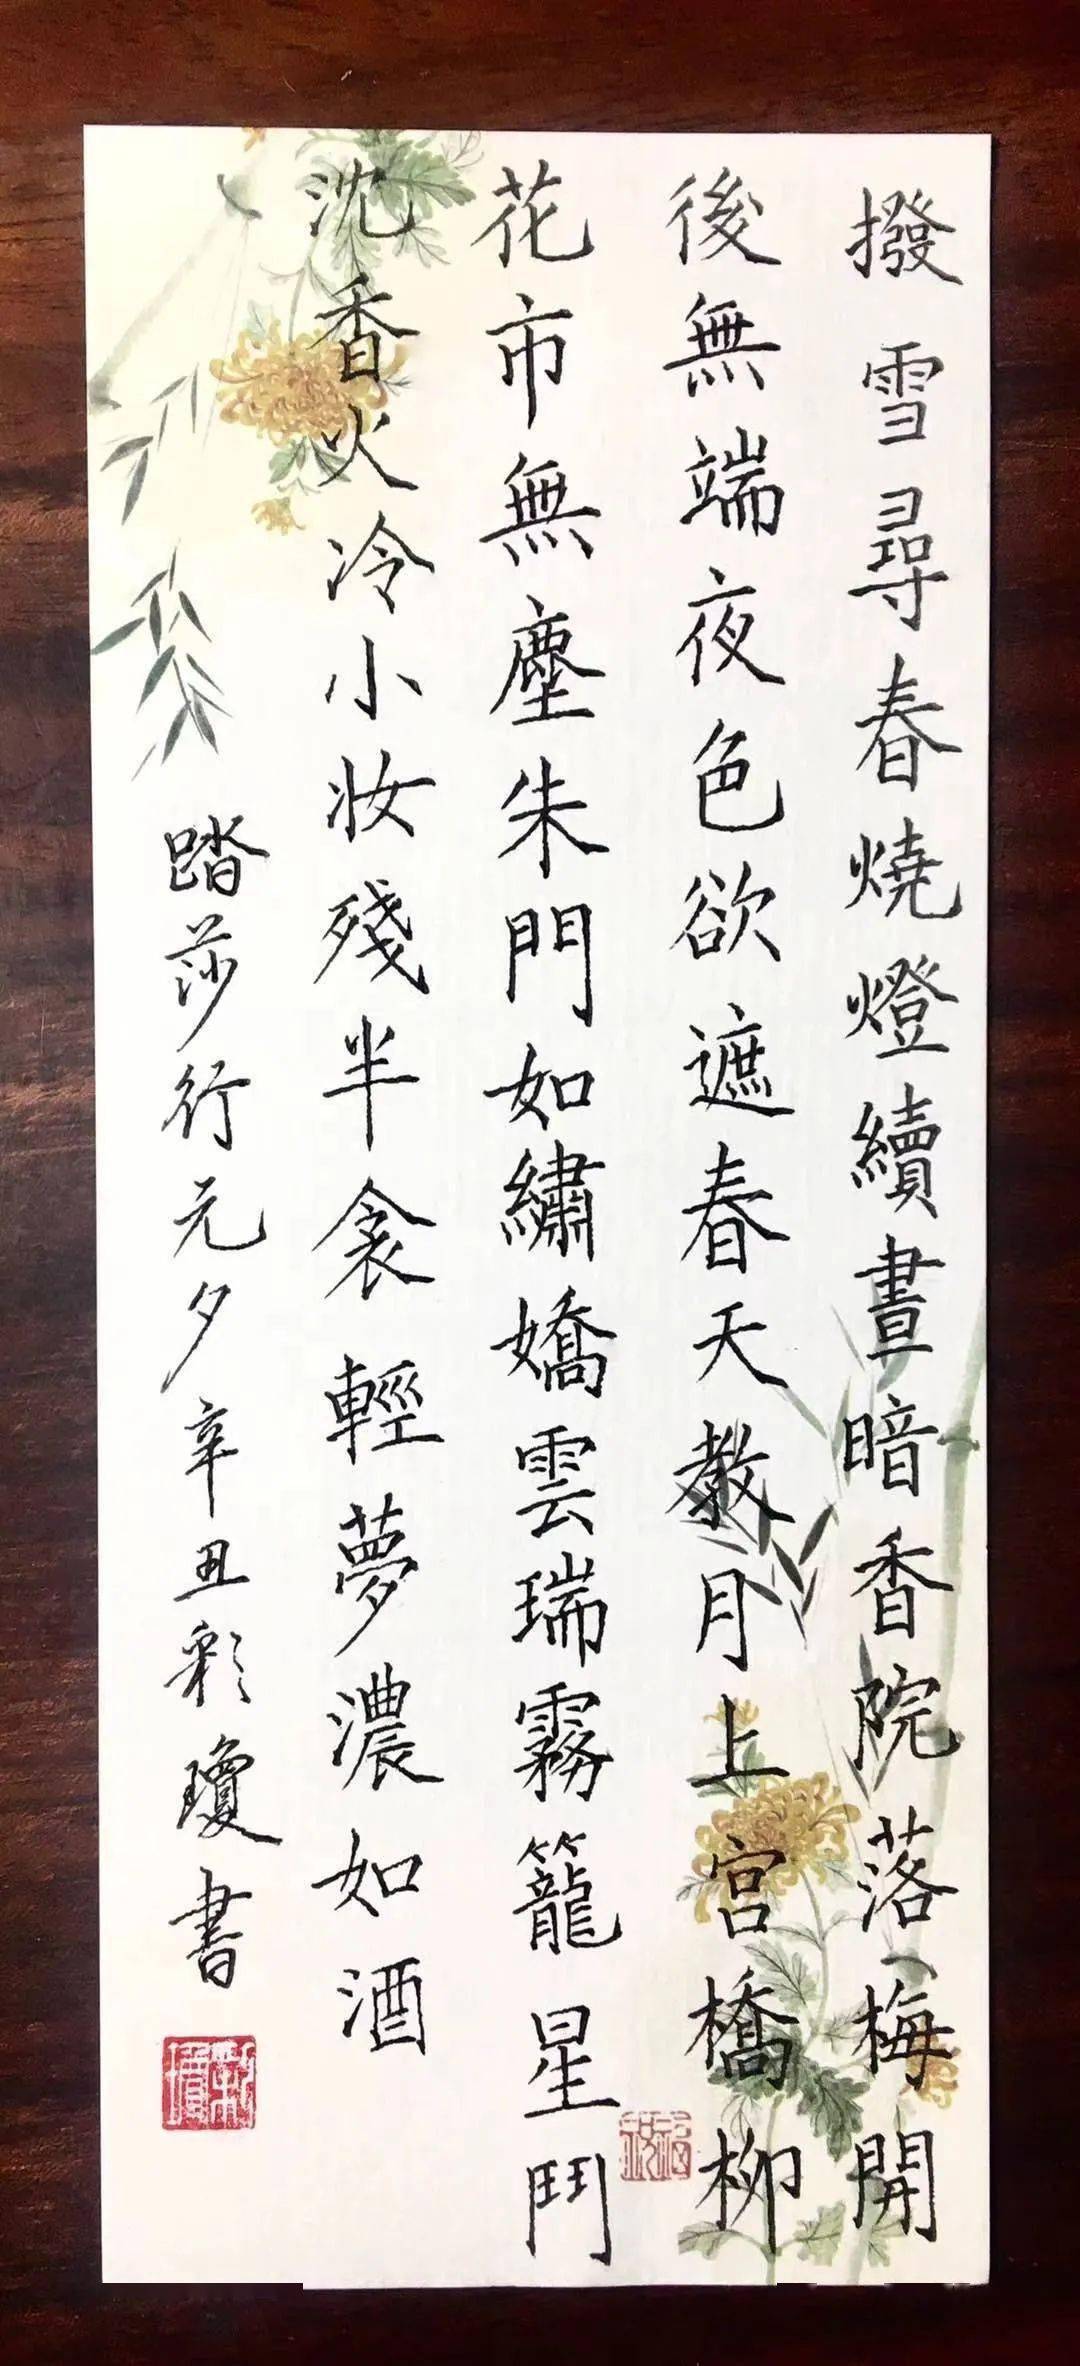 撥雪尋春燒燈續晝暗香院落梅開
後無端夜色欲遮春天教月上宮橋柳
花市無塵朱門如繡嬌雲瑞霧籠星鬥
沈香火冷小妝殘半衾輕夢濃如酒
踏莎行元夕辛丑彩瓊書